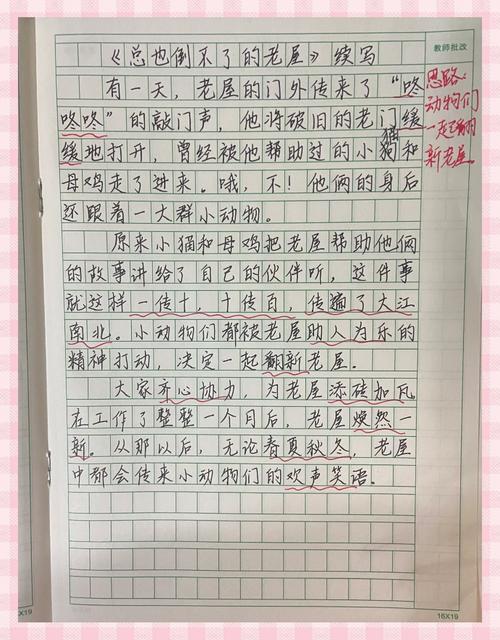 《总也倒不了的老屋》续写
有一天，老屋的门外传来了“咚
咚咚”的敲门声，他将破旧的老门缓
缓地打开，曾经被他帮助过的小猫和
母鸡走了进来。哦，不！他俩的身后
还跟着一大群小动物。
原来小猫和母鸡把老屋帮助他俩
的故事讲给了自己的伙伴听，这件事
就这样一传十，十传百，传遍了大江
南北。小动物们都被老屋助人为乐的
精神打动，决定一起翻新老屋。
大家齐心协力，为老屋添砖加瓦
在工作了整整一个月后，老屋焕然一
新。从那以后，无论春夏秋冬，老屋
中都会传来小动物们的欢声笑语。
教师批改
思路：
动物们
一起翻
新老屋
X19
16X19